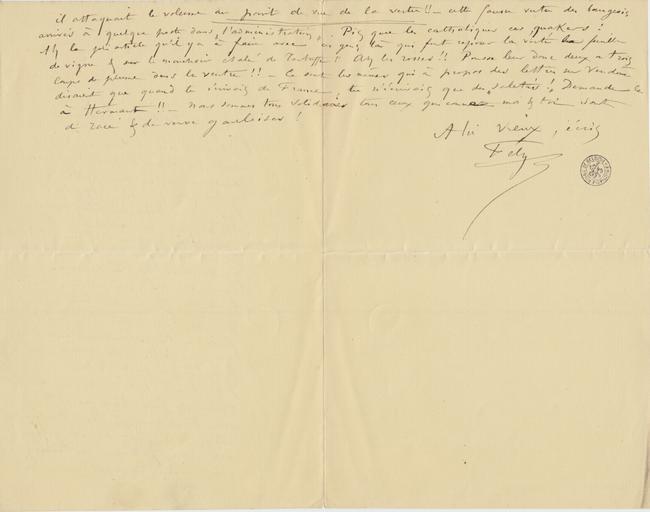 il attaquait le volume au point de vue de la vertu !! – cette fausse vertu des bourgeois
arrivés à quelque poste dans "l'administration". Pis que les catholiques ces quakers !
Ah le joli article qu'il y a à faire avec ces gens là qui font reposer la vertu feuille
de vigne & sur le mouchoir de Tartuffe ! Ah les rosses !! Pousse leur donc deux ou trois
coups de plume dans le ventre !! – Ce sont les mêmes qui à propos des lettres sur Verdun
disaient que quand tu écrivais de France, tu n'écrivais que des saletés ! Demande le
à Hermant !! – Nous sommes tous solidaires tous ceux qui comme moi & toi sont
de race & de verve gauloises !
A toi vieux, écris
Fély